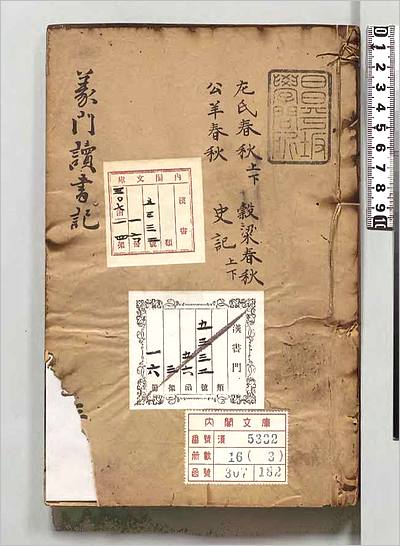 義門讀書記
左氏春秋上下
穀梁春秋
公羊春秋
史記上下
昌平坂
學問所
內閣文庫
漢書
類
號
冊
架
漢書門
五三三二
類
號
函
架
冊
一六
內閣文庫
番號 漢 5332
冊數 16(3)
函號 307 182
0 1 2 3 4 5 6 7 8 9 10